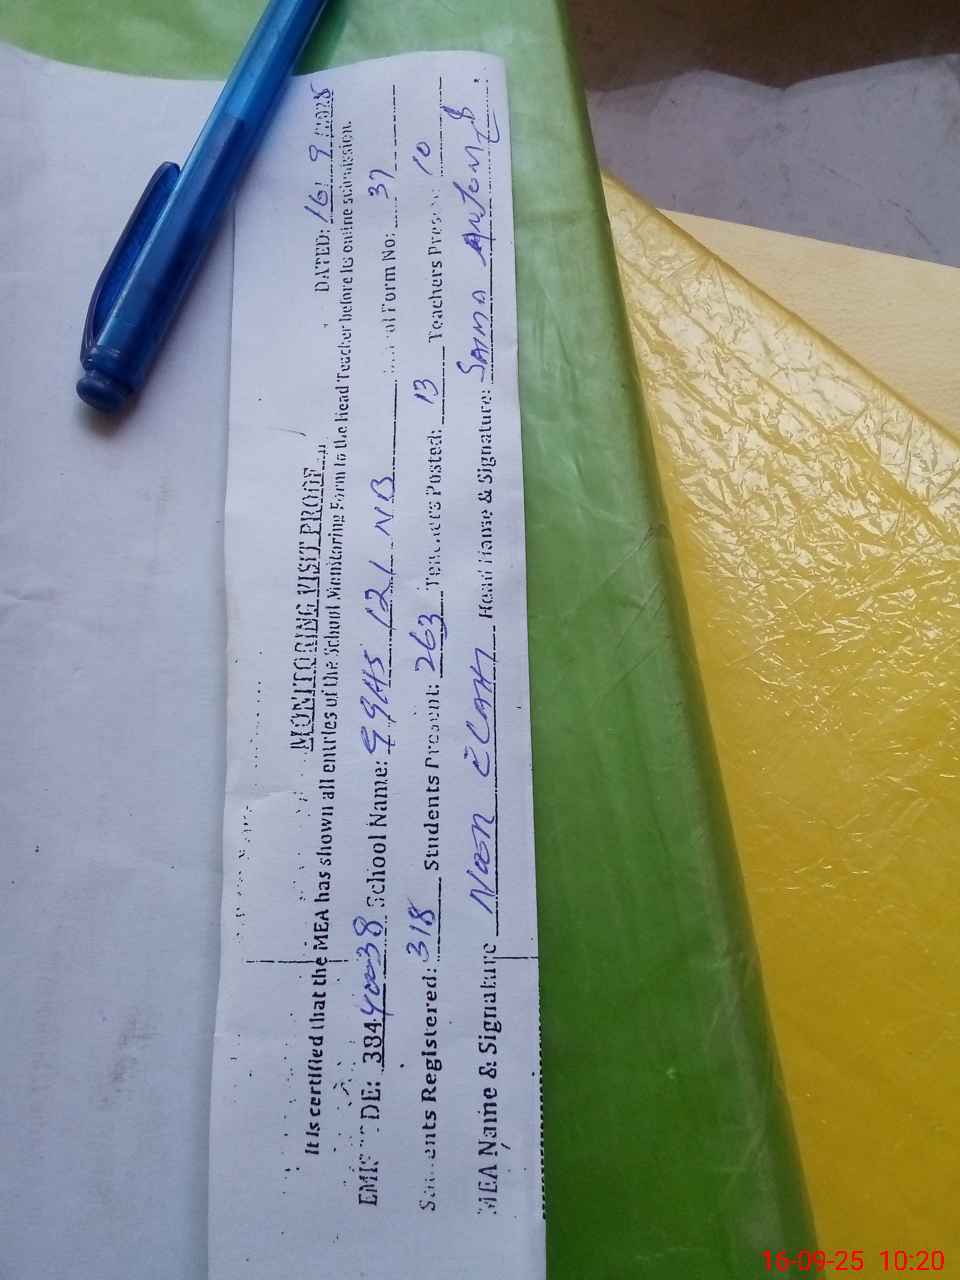 MONITORING VISIT PROOF
DATED: 16 9 2025
It is certified that the MEA has shown all entries of the School Monitoring Form to the Head Teacher before its online submission.
DE: 38440038 School Name: GGHS 121 NB Form No: 37
Students Registered: 318 Students Present: 263 Teachers Posted: 13 Teachers Present: 10
MEA Name & Signature Head Name & Signature: Saima
16-09-25 10:20